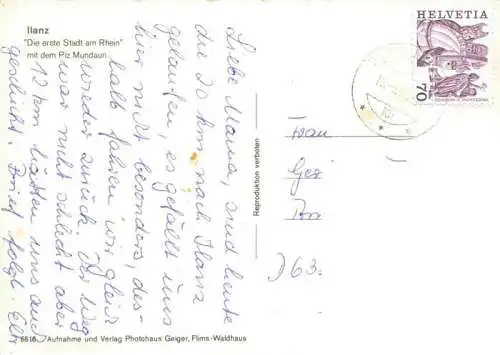 Ilanz
"Die erste Stadt am Rhein"
mit dem Piz Mundaun
Liebe Mama, sind heute
die 20 km nach Ilanz
gelaufen, es gefällt uns
hier nicht besonders, des-
halb fahren wir gleich
wieder zurück. Der Weg
war nicht schlecht aber
12 km hätten uns auch
gereicht. Brief folgt.
Reproduktion verboten
HELVETIA
70
Frau
D 63
6616 Aufnahme und Verlag Photohaus Geiger, Flims-Waldhaus